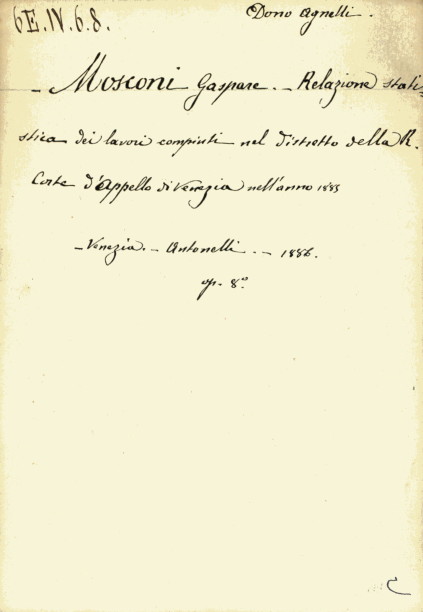 6E.IV.6.8.
Dono Agnelli.
- Mosconi Gaspare. - Relazione stati=
stica dei lavori compiuti nel distretto della R.
Corte d'Appello di Venezia nell'anno 1885
- Venezia. - Antonelli. - 1886.
op. 8°